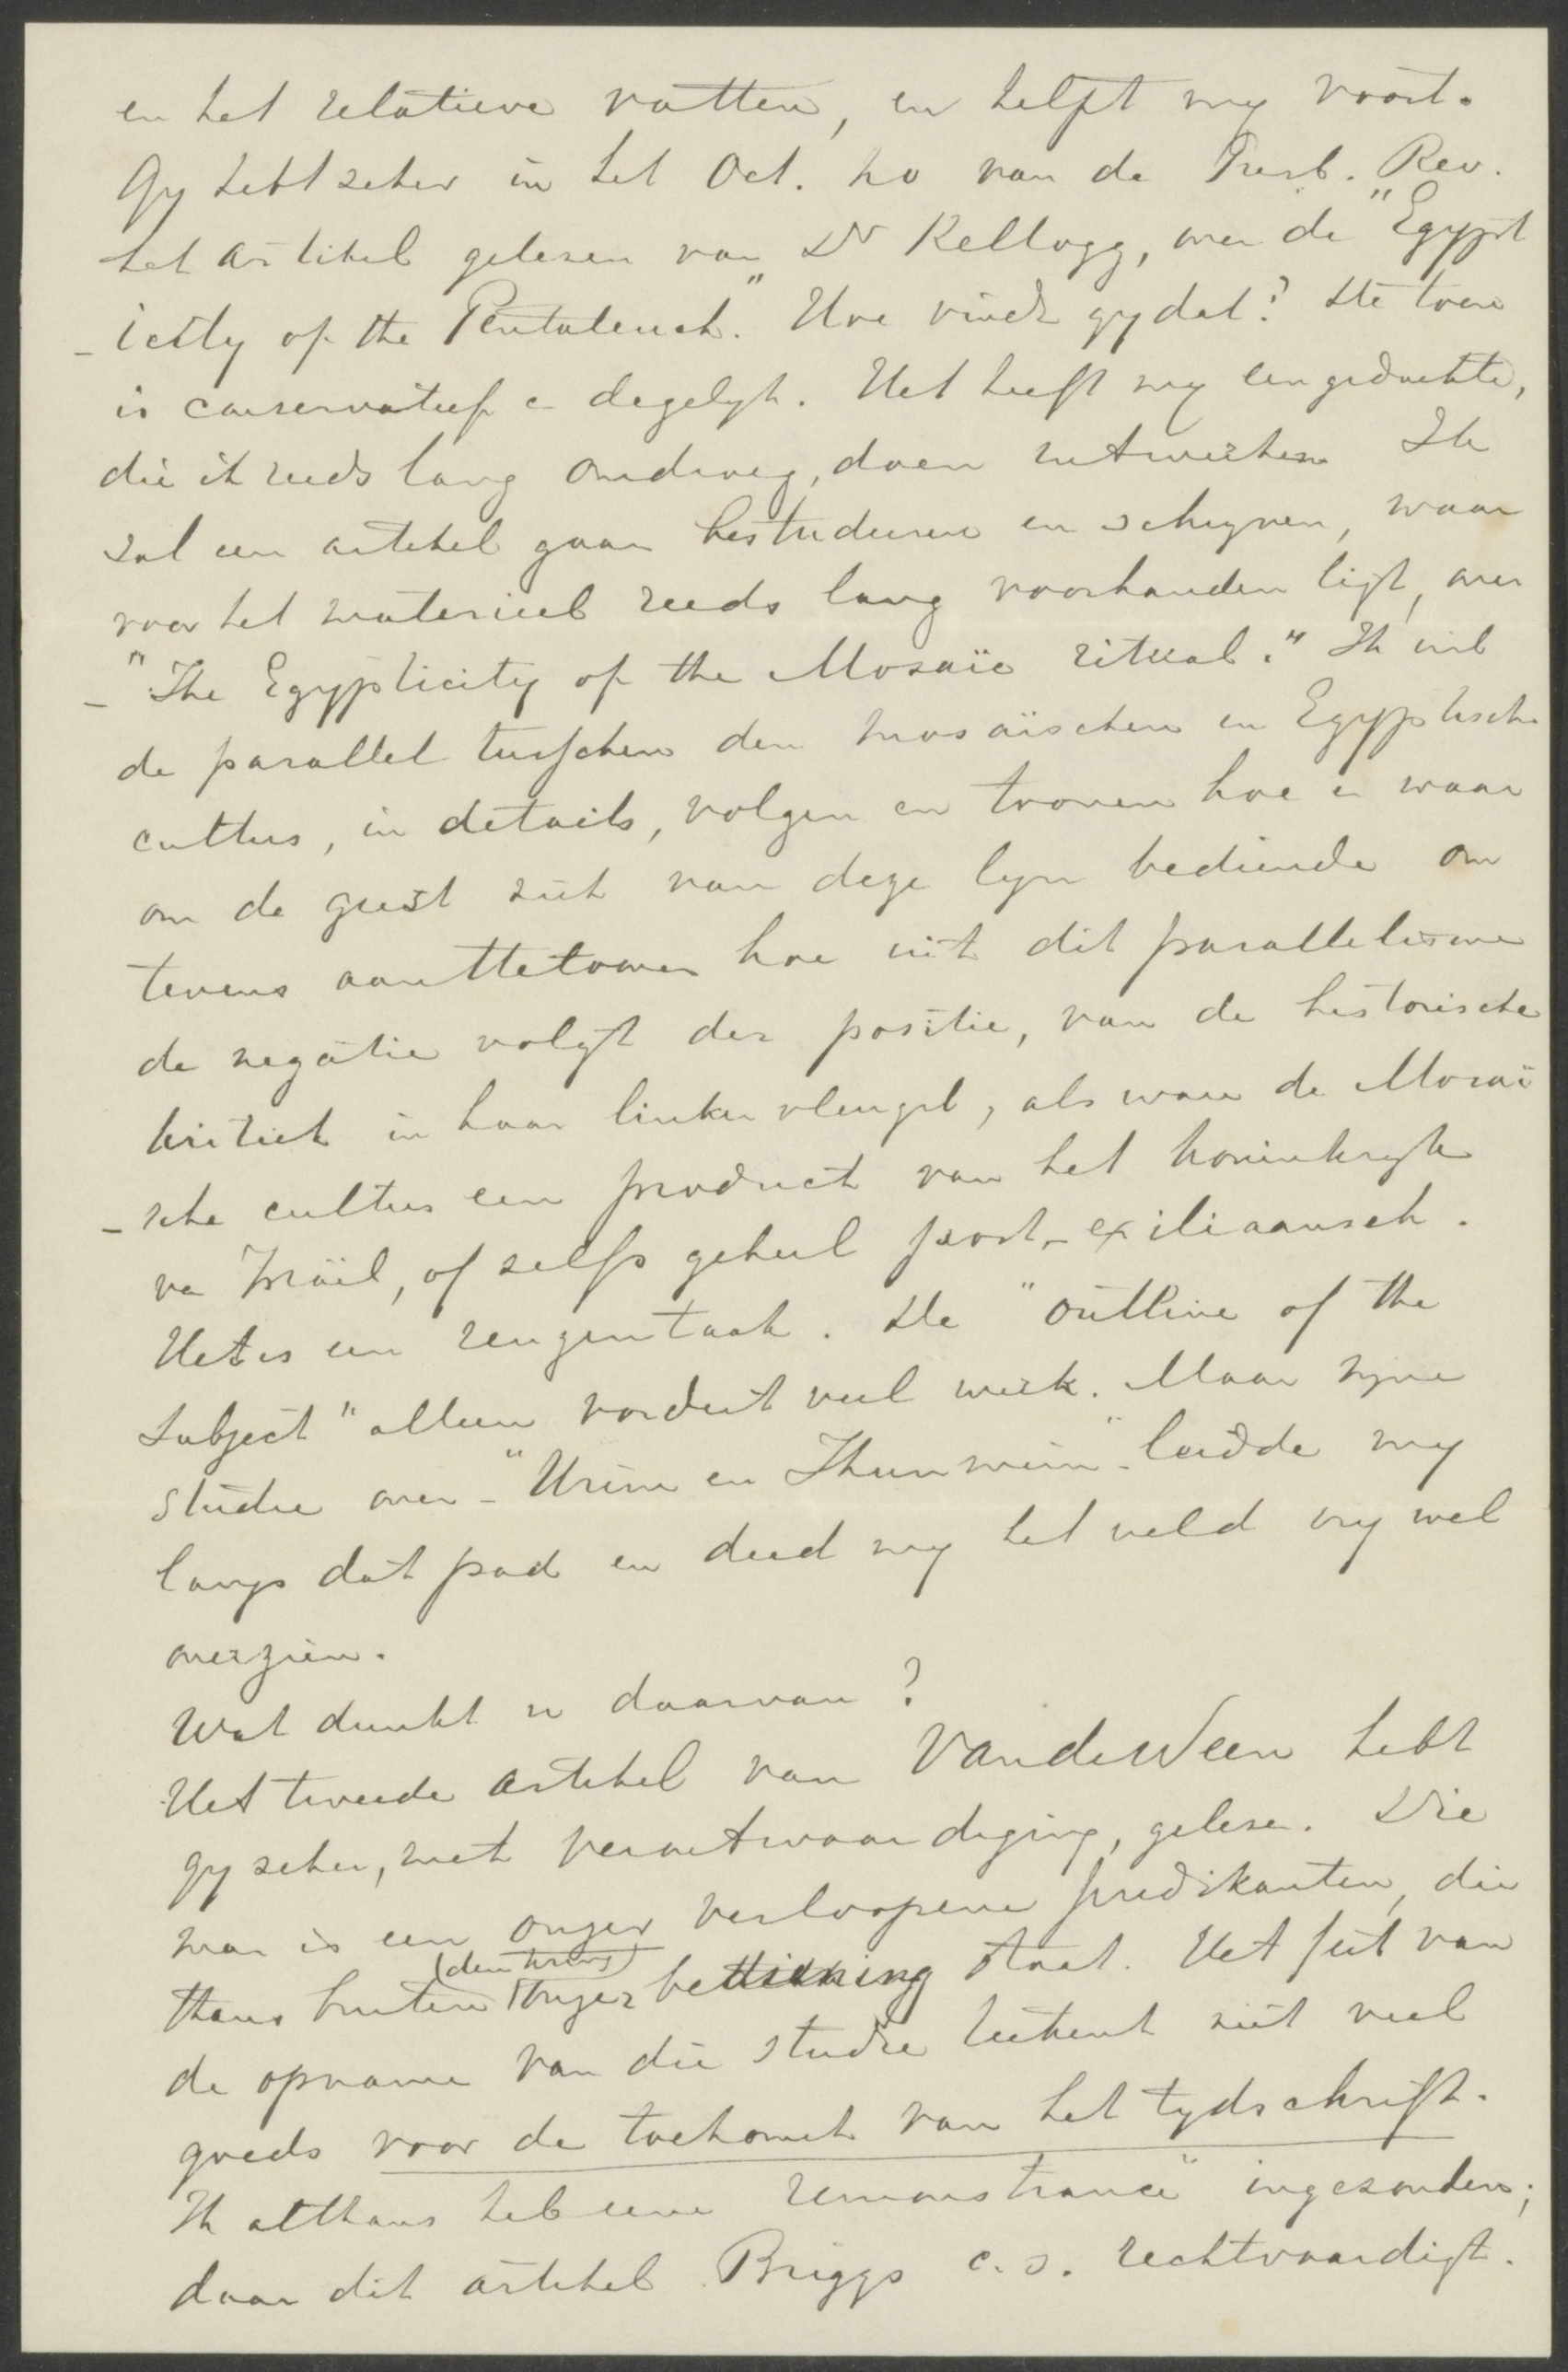 en het relatieve vatten, en helpt my voort.
Gy hebt zeker in het Oct. no van de Presb. Rev.
het artikel gelezen van Dr Kellogg, over de "Egypt
-icity of the Pentateuch." Hoe vindt gy dat? De toon
is conservatief en degelyk. Het heeft my een gedachte,
die ik reeds lang omdroeg, doen uitwerken Ik
zal een artikel gaan bestudeeren en schryven, waar
voor het materieel reeds lang voorhanden ligt, over
-"The Egypticity of the Mosaïc ritual." Ik wil
de parallel tusschen den mosaïschen en Egyptische
cultus, in details, volgen en toonen hoe en waar
om de geest zich van deze lyn bediende om
tevens aan te toonen hoe uit dit parallelisme
de negatie volgt der positie, van de historische
kritiek in haar linker vleugel, als ware de Mosaï
-sche cultus een product van het koninkryk
va Israël, of zelfs geheel post-exiliaansch.
Het is een reuzentaak. De "outline of the
subject" alleen vordert veel werk. Maar myne
studie over - "Urim en Thummim" - leidde my
langs dat pad en deed my het veld vry wel
overzien.
Wat dunkt u daarvan?
Het tweede artikel van VandeWeen hebt
gy zeker, met verontwaardiging, gelezen. Die
man is een onzer verloopene predikanten, die
thans buiten (den kring) onzer bediening staat. Het feit van
de opname van die studie teekent niet veel
goeds voor de toekomst van het tydschrift.
Ik althans heb eene "remonstrance" ingezonden;
daar dit artikel Briggs c.s. rechtvaardigt.